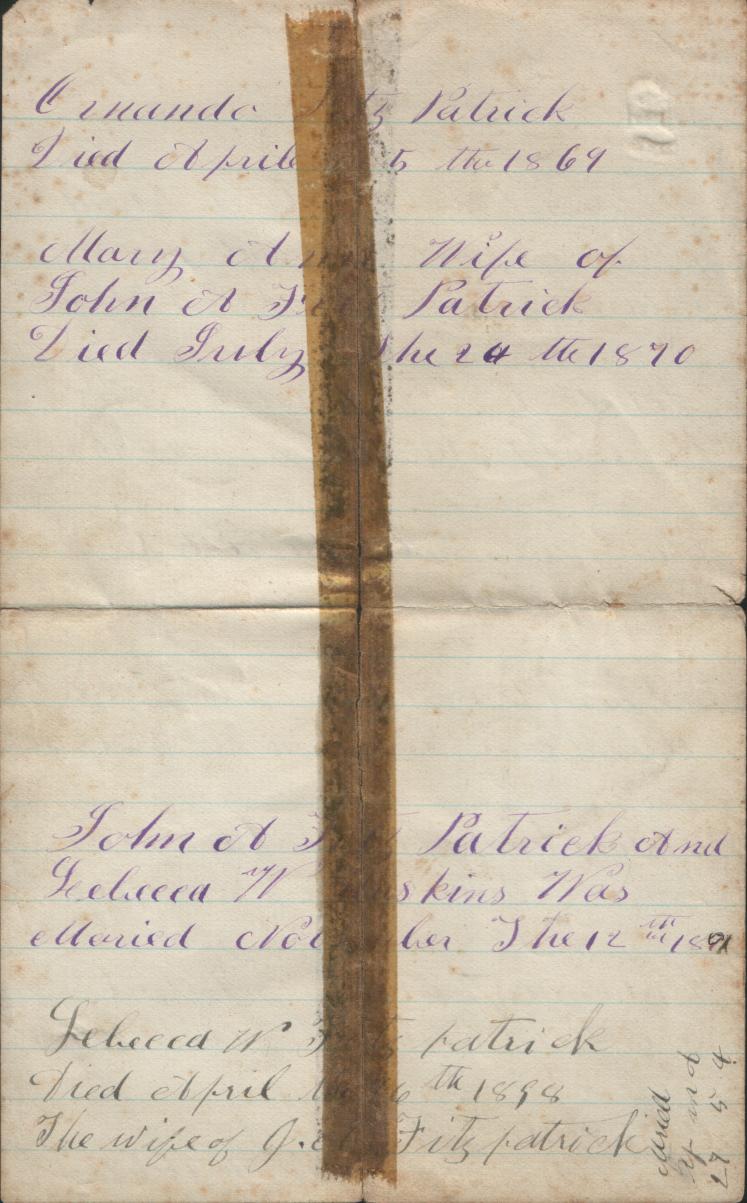 Ornando Fitz Patrick
Died April 5 th 1869
Mary Ann Wife of
John A Fitz Patrick
Died July the 24 th 1870
John A Fitz Patrick And
Rebecca W Was
Maried November The 12 th
Rebecca W Fitzpatrick
Died April 6 th 1898
The wife of J. A. Fitzpatrick
Maried
27 5 4